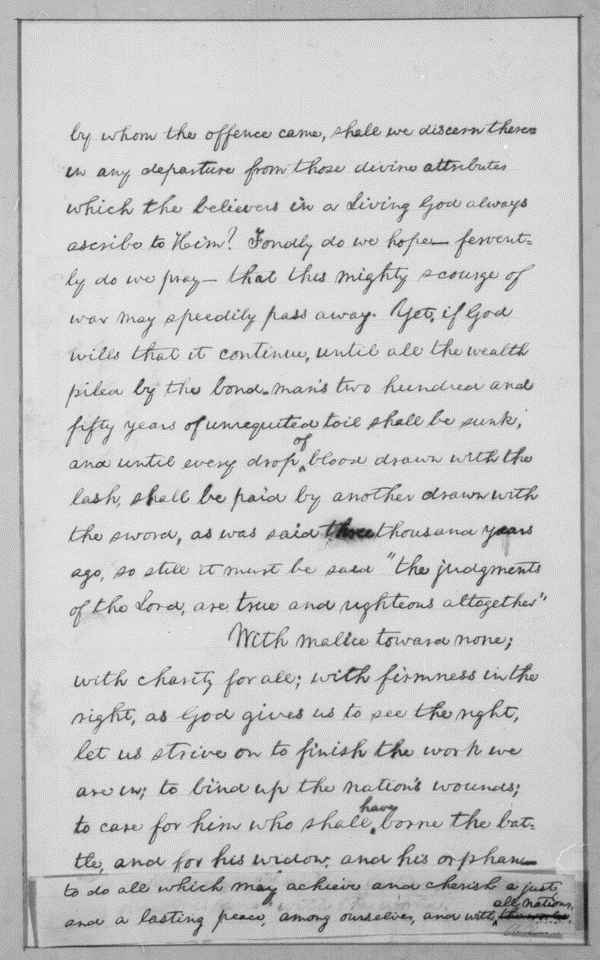 by whom the offence came, shall we discern there=
in any departure from those divine attributes
which the believers in a Living God always
ascribe to Him? Fondly do we hope— fervent=
ly do we pray— that this mighty scourge of
war may speedily pass away. Yet, if God
wills that it continue, until all the wealth
piled by the bond-man's two hundred and
fifty years of unrequited toil shall be sunk,
and until every drop of blood drawn with the
lash, shall be paid by another drawn with
the sword, as was said three thousand years
ago, so still it must be said "the judgments
of the Lord, are true and righteous altogether"
With malice toward none;
with charity for all; with firmness in the
right, as God gives us to see the right,
let us strive on to finish the work we
are in; to bind up the nation's wounds;
to care for him who shall have borne the bat=
tle, and for his widow, and his orphan—
to do all which may achieve and cherish a just,
and a lasting peace, among ourselves, and with all nations.